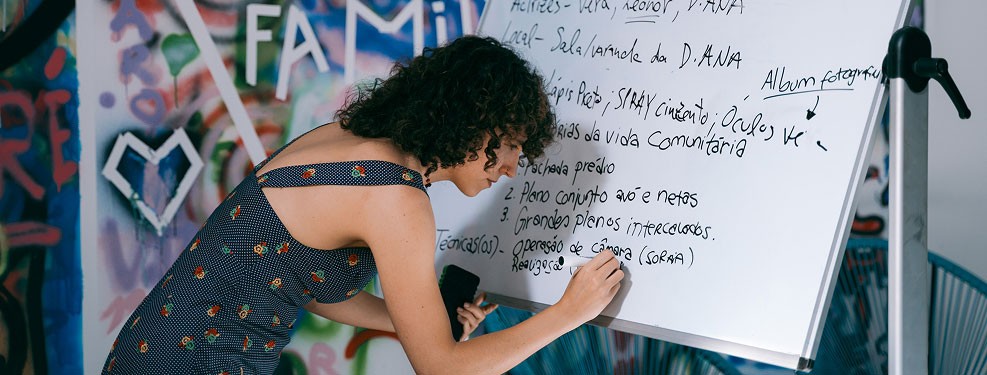 FAMíL
Actrizes - Vera, Leonor, D. ANA
Local - Sala/varanda da D. ANA
Album fotográfi
Lápis Preto; SPRAY cinzento; Óculos Ve
da vida comunitária
prédio
2. Plano conjunto avó e netas
3. Grandes planos intercalados.
Técnicas(os) - Operação de câmara (SORAIA)